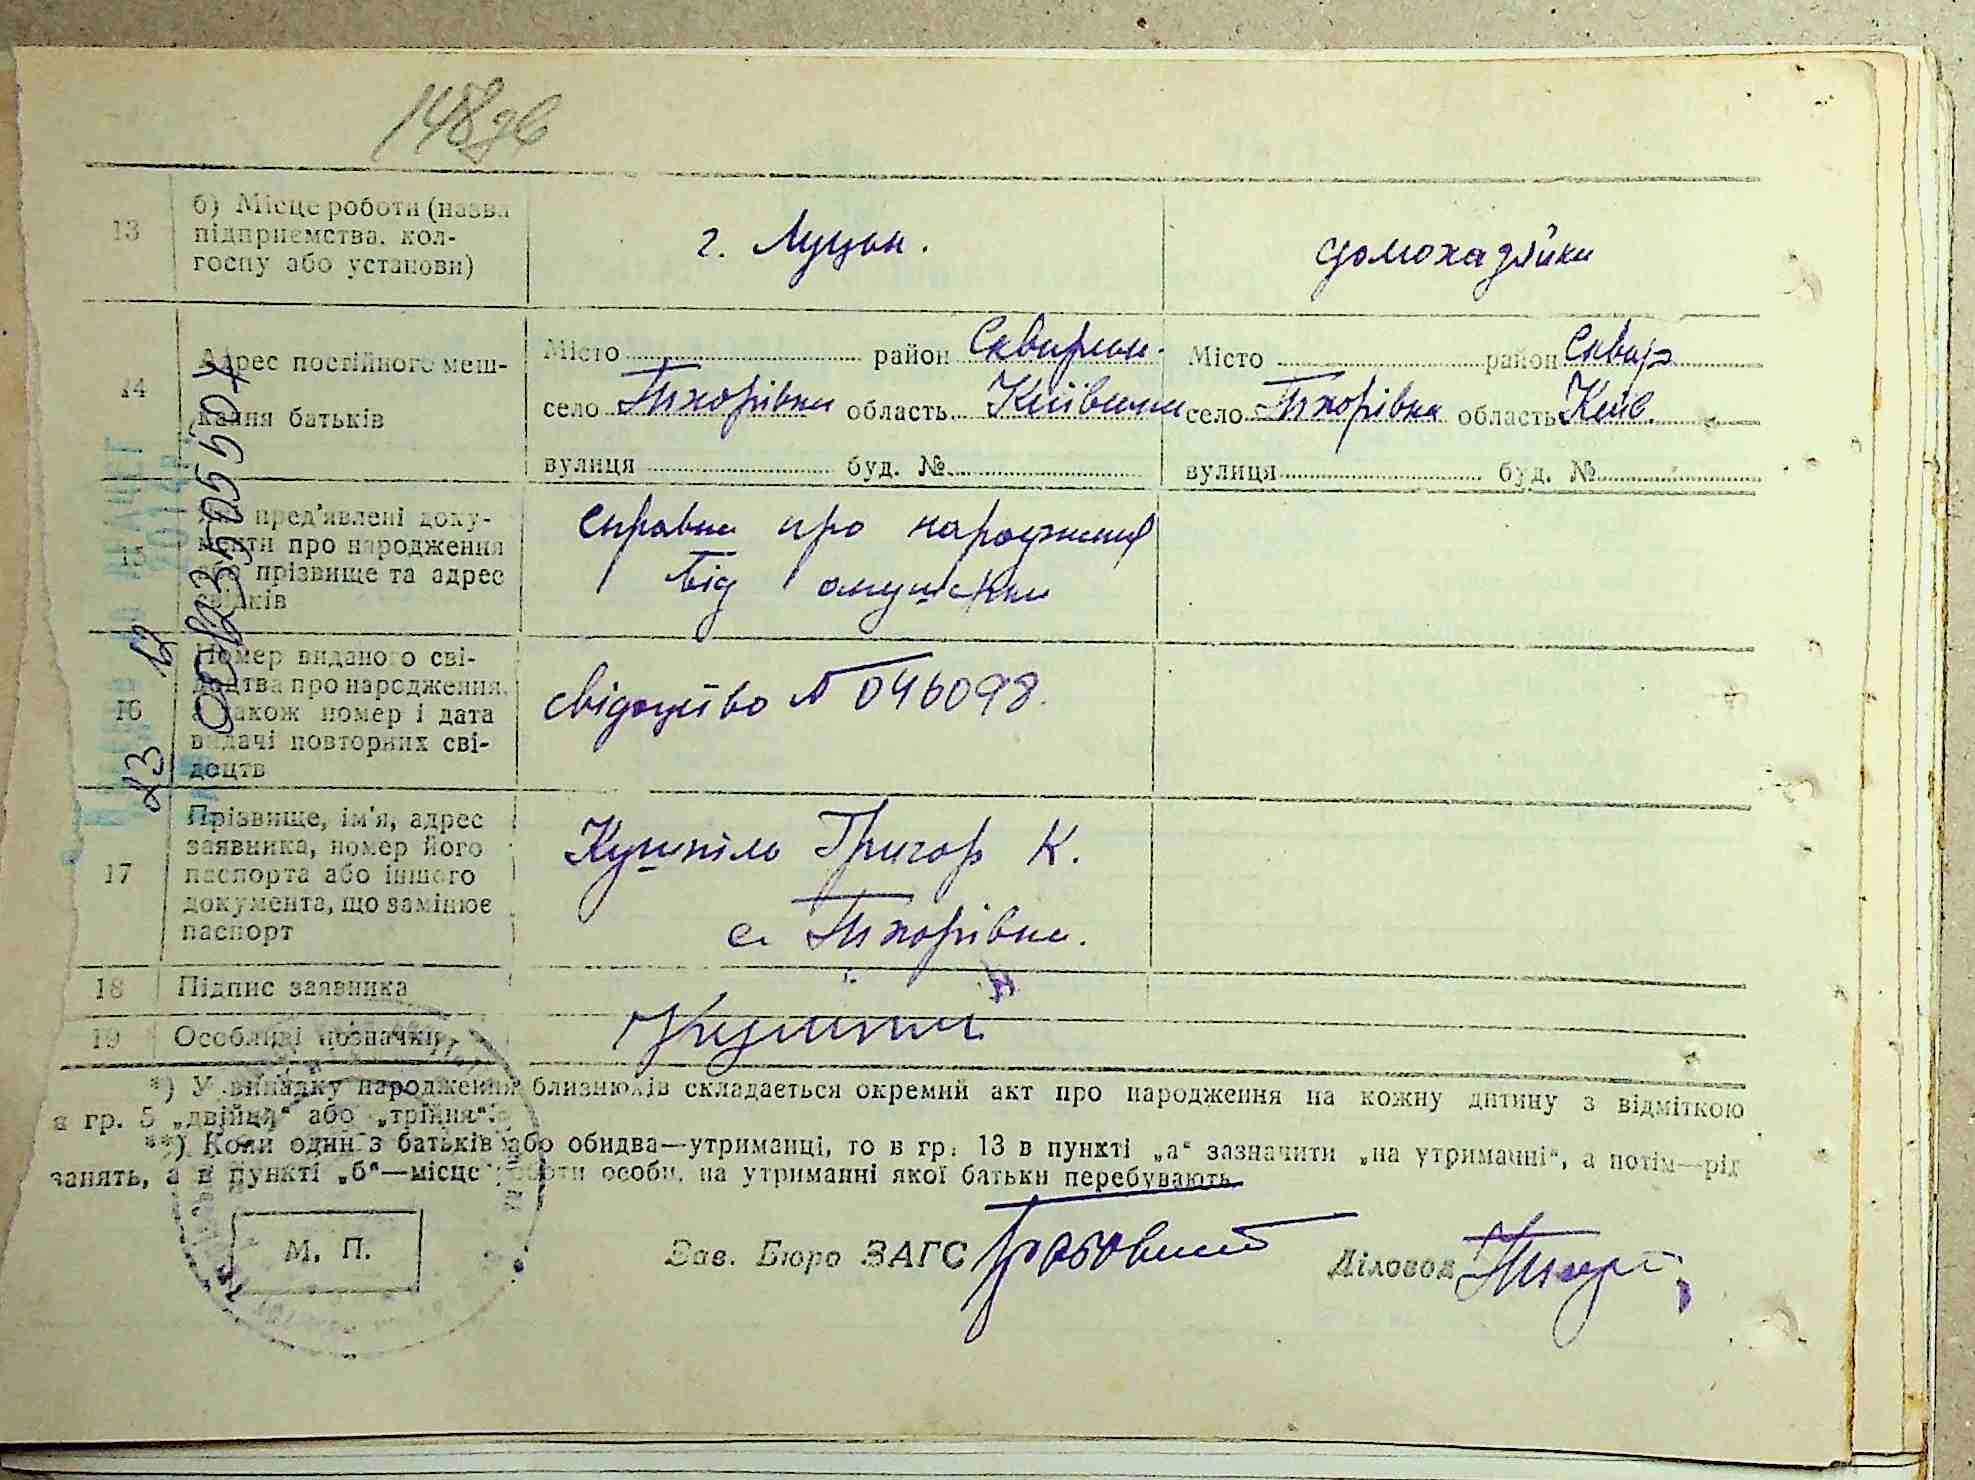 148зв
13 б) Місце роботи (назва підприємства, кол-госпу або установи) г. Луцьк. домохазяйки
14 Адрес постійного меш-кання батьків
Місто район Сквирськ. Місто район Сквир
село Тхорівка область Київська село Тхорівка область Київ.
вулиця буд. № вулиця буд. №
15 пред'явлені доку-
менти про народження справка про народження
прізвище та адрес від акушерки
свідків
16 Номер виданого сві-
доцтва про народження,
а також номер і дата свідоцтво № 046098.
видачі повторних сві-
доцтв
17 Прізвище, ім'я, адрес
заявника, номер його Кушніль Григор К.
паспорта або іншого
документа, що замінює с. Тхорівка.
паспорт
18 Підпис заявника
19 Особливі позначки
*) У випадку народження близнюків складається окремий акт про народження на кожну дитину з відміткою
в гр. 5 „двійня“ або „трійня“.
**) Коли один з батьків або обидва—утриманці, то в гр. 13 в пункті „а“ зазначити „на утриманні“, а потім—рід
занять, а в пункті „б“—місце роботи особи, на утриманні якої батьки перебувають
М. П. Зав. Бюро ЗАГС Діловод